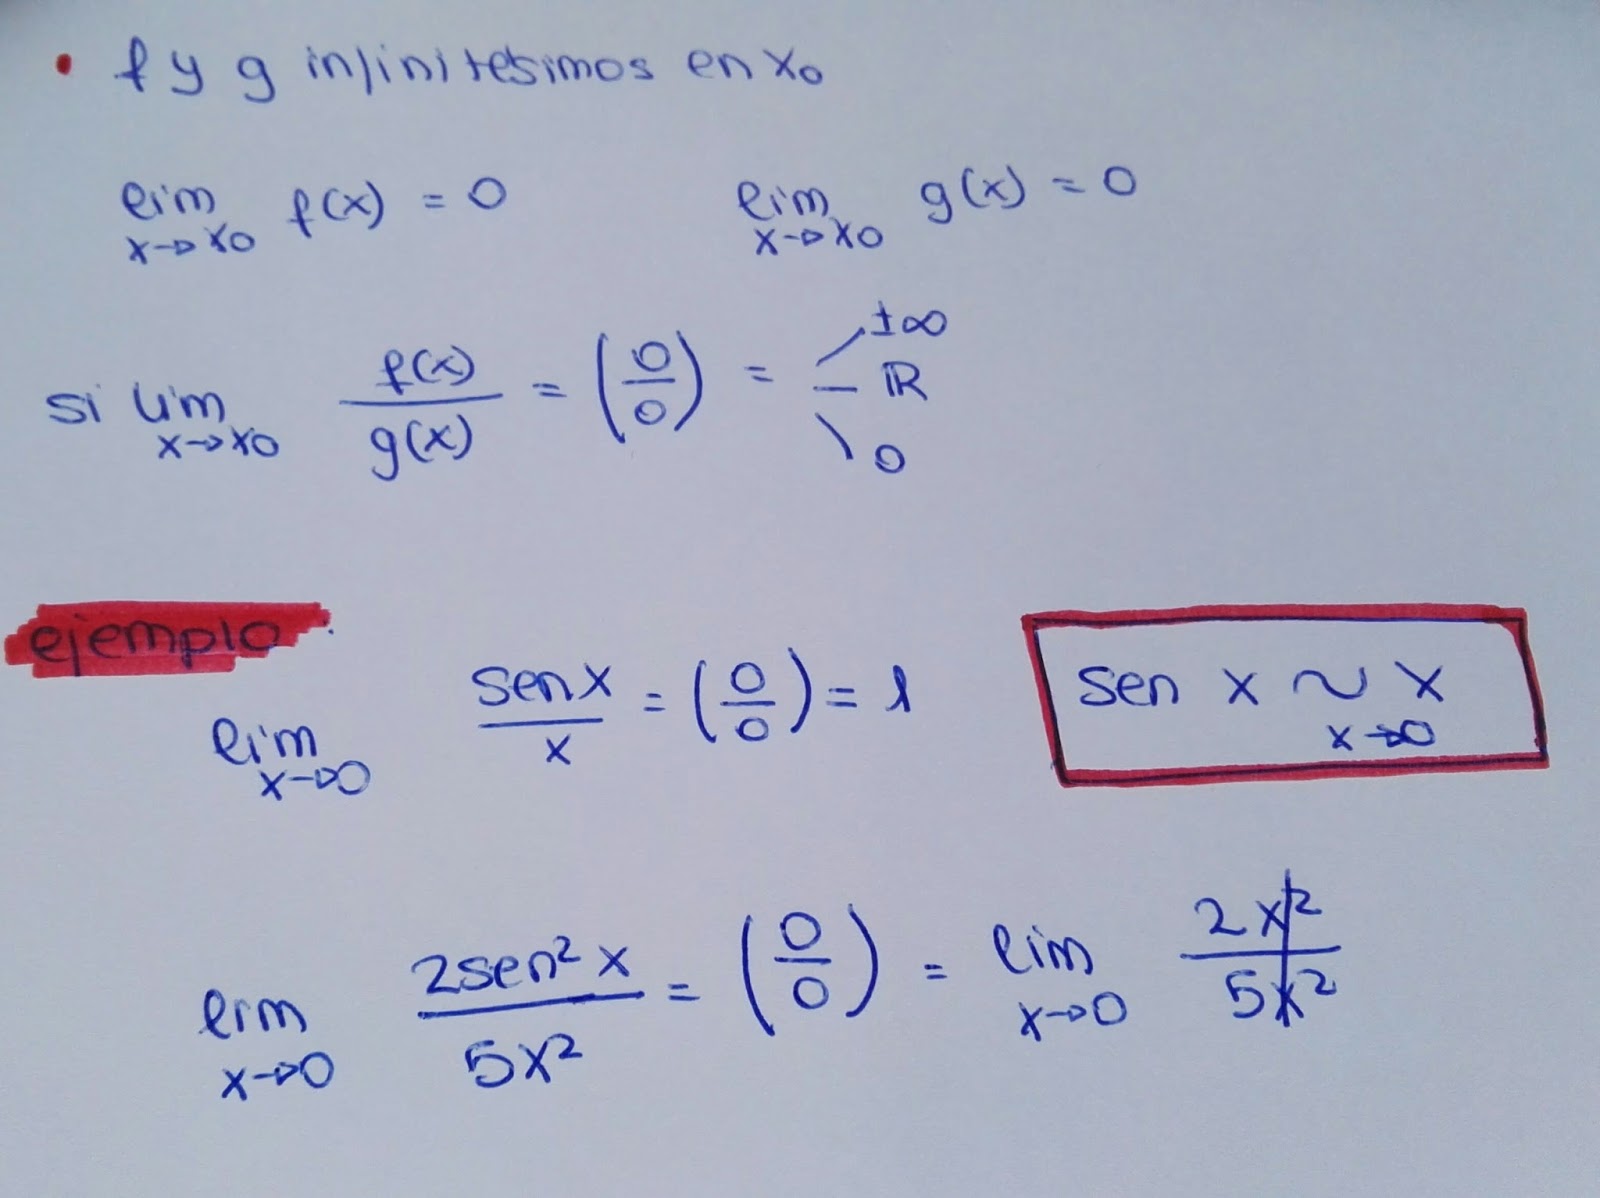 • f y g infinitésimos en x₀
lim x→x₀ f(x) = 0 lim x→x₀ g(x) = 0
si lim x→x₀ f(x)/g(x) = (0/0) = ±∞ ℝ 0
ejemplo.
lim x→0 sen x/x = (0/0) = 1 sen x ~ x x→0
lim x→0 2sen² x/5x² = (0/0) = lim x→0 2x²/5x²